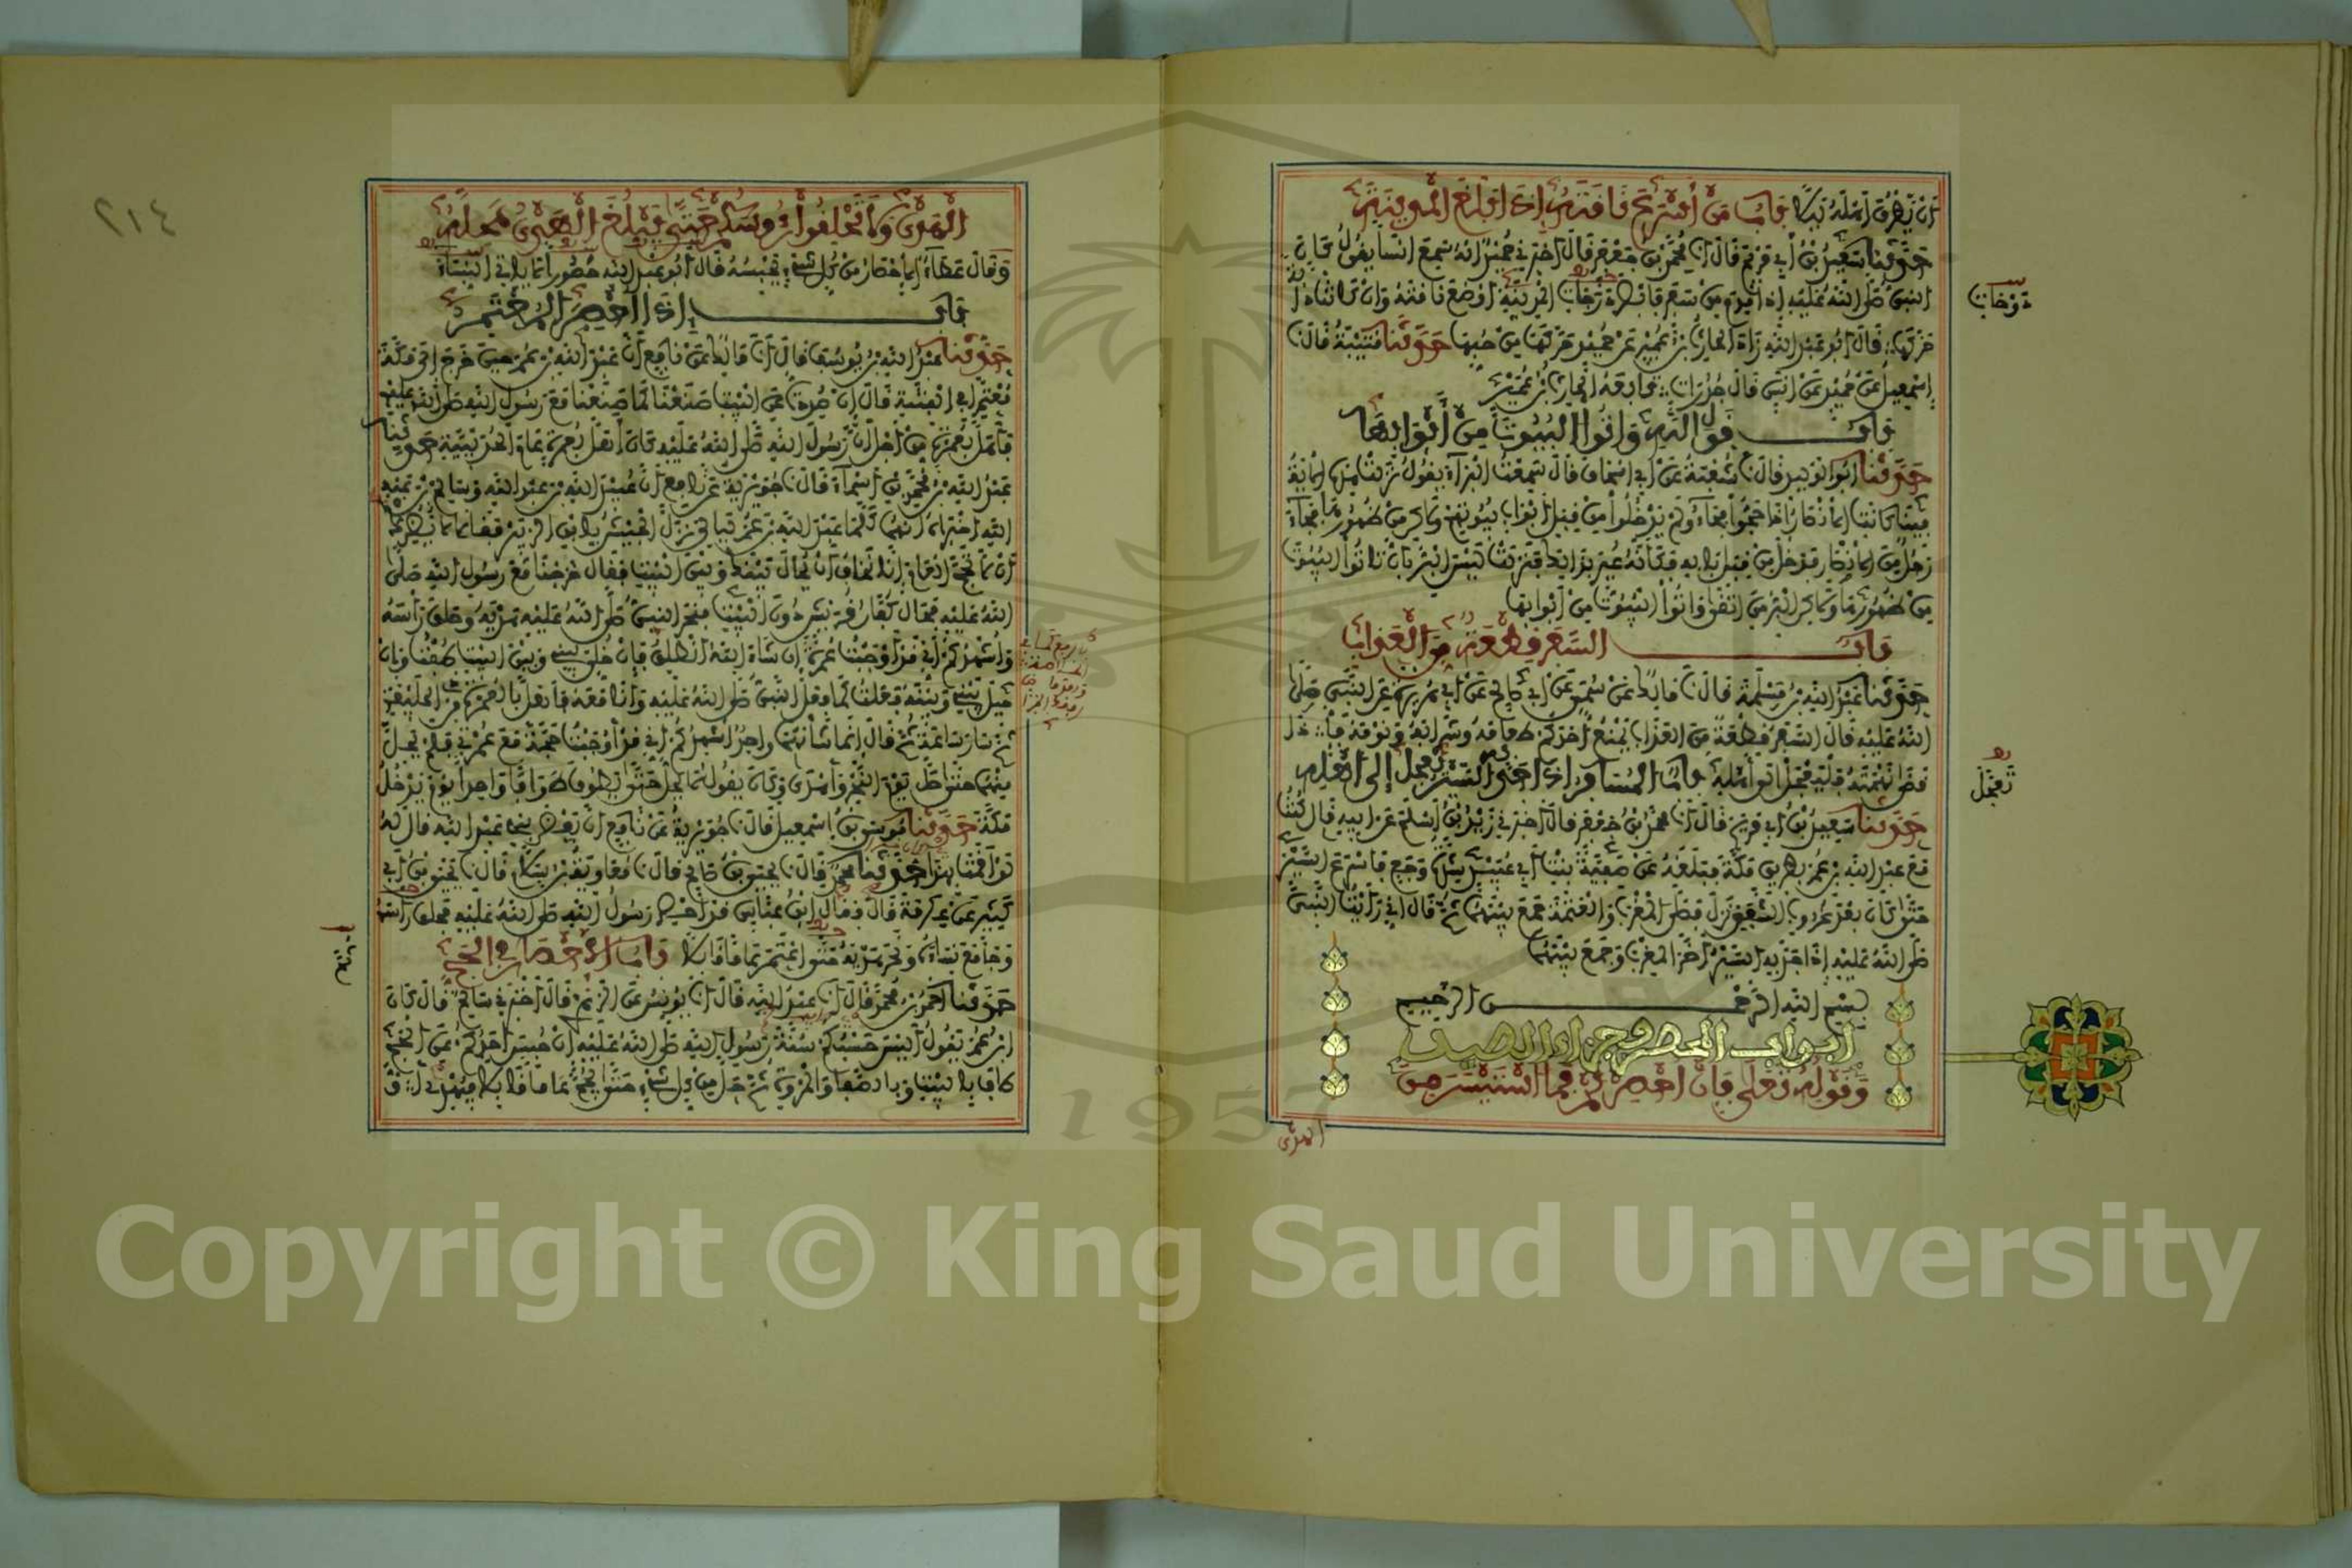 أن يطرق أهله ليلا باب من أسرع ناقته إذا بلغ المدينة
حدثنا سعيد بن أبي مريم قال أنا محمد بن جعفر قال أخبرني حميد أنه سمع أنسا يقول كان
النبي صلى الله عليه إذا قدم من سفر فأبصر درجات المدينة أوضع ناقته وإن كانت دابة
حركها قال أبو عبد الله زاد الحارث بن عمير عن حميد حركها من حبها حدثنا قتيبة قال نا
إسمعيل عن حميد عن أنس قال جدرات تابعه الحارث بن عمير
باب قول الله وأتوا البيوت من أبوابها
حدثنا أبو الوليد قال نا شعبة عن أبي إسحاق قال سمعت البراء يقول نزلت هذه الآية
فينا كانت الأنصار إذا حجوا فجاءوا لم يدخلوا من قبل أبواب بيوتهم ولكن من ظهورها فجاء
رجل من الأنصار فدخل من قبل بابه فكأنه عير بذلك فنزلت ليس البر بأن تاتوا البيوت
من ظهورها ولكن البر من اتقى وأتوا البيوت من أبوابها
باب السفر قطعة من العذاب
حدثنا عبد الله بن مسلمة قال نا مالك عن سمي عن أبي صالح عن أبي هريرة عن النبي صلى
الله عليه قال السفر قطعة من العذاب يمنع أحدكم طعامه وشرابه ونومه فإذا
قضى نهمته فليعجل إلى أهله باب المسافر إذا جد به السير تعجل إلى أهله
حدثنا سعيد بن أبي مريم قال أنا محمد بن جعفر قال أخبرني زيد بن أسلم عن أبيه قال كنت
مع عبد الله بن عمر بطريق مكة فبلغه عن صفية بنت أبي عبيد شدة وجع فأسرع السير
حتى كان بعد غروب الشفق نزل فصلى المغرب والعتمة جمع بينهما ثم قال إني رأيت النبي
صلى الله عليه إذا جد به السير أخر المغرب وجمع بينهما
بسم الله الرحمن الرحيم
أبواب المحصر وجزاء الصيد
وقوله تعلى فإن أحصرتم فما استيسر من
الهدي
دوحات
تعجل
٢١٤
الهدي ولا تحلقوا رءوسكم حتى يبلغ الهدي محله
وقال عطاء الإحصار من كل شيء يحبسه قال أبو عبد الله حصورا لا ياتي النساء
باب إذا أحصر المعتمر
حدثنا عبد الله بن يوسف قال أنا مالك عن نافع أن عبد الله بن عمر حين خرج إلى مكة
معتمرا في الفتنة قال إن صددت عن البيت صنعنا كما صنعنا مع رسول الله صلى الله عليه
فأهل بعمرة من أجل أن رسول الله صلى الله عليه كان أهل بعمرة عام الحديبية حدثنا
عبد الله بن محمد بن أسماء قال نا جويرية عن نافع أن عبيد الله بن عبد الله وسالم بن عبد
الله أخبراه أنهما كلما عبد الله بن عمر ليالي نزل الجيش بابن الزبير فقالا لا يضرك
أن لا تحج العام إنا نخاف أن يحال بينك وبين البيت فقال خرجنا مع رسول الله صلى
الله عليه فحال كفار قريش دون البيت فنحر النبي صلى الله عليه هديه وحلق رأسه
وأشهدكم أني قد أوجبت عمرة إن شاء الله أنطلق فإن خلي بيني وبين البيت طفت وإن
حيل بيني وبينه فعلت كما فعل النبي صلى الله عليه وأنا معه فأهل بالعمرة من ذي الحليفة
ثم سار ساعة ثم قال إنما شأنهما واحد أشهدكم أني قد أوجبت حجة مع عمرتي فلم يحل
منهما حتى حل يوم النحر وأهدى وكان يقول لا يحل حتى يطوف طوافا واحدا يوم يدخل
مكة حدثنا موسى بن إسمعيل قال نا جويرية عن نافع أن بعض بني عبد الله قال له
لو أقمت بهذا حدثنا محمد قال نا يحيى بن صالح قال نا معاوية بن سلام قال نا يحيى بن أبي
كثير عن عكرمة قال قال ابن عباس قد أحصر رسول الله صلى الله عليه فحلق رأسه
وجامع نساءه ونحر هديه حتى اعتمر عاما قابلا باب الإحصار في الحج
حدثنا أحمد بن محمد قال أنا عبد الله قال أنا يونس عن الزهري قال أخبرني سالم قال كان
ابن عمر يقول أليس حسبكم سنة رسول الله صلى الله عليه إن حبس أحدكم عن الحج
طاف بالبيت وبالصفا والمروة ثم حل من كل شيء حتى يحج عاما قابلا فيهدي
Copyright © King Saud University
1957